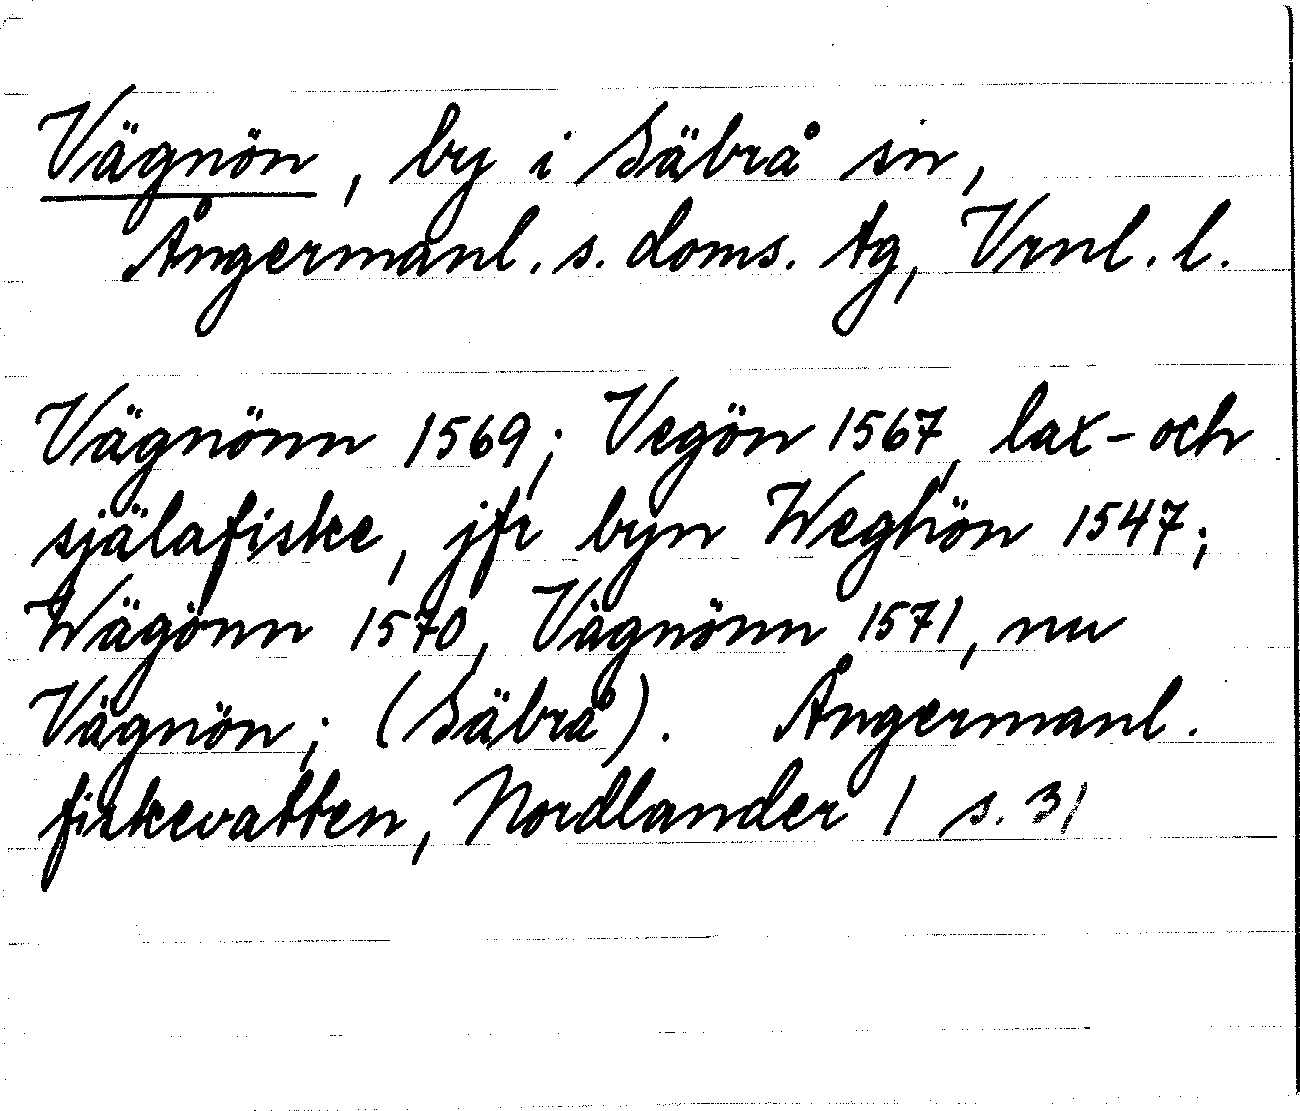 Vägnön, by i Säbrå sn,
Ångermanl. s. doms. tg, Vrnl. l.
Vägnönn 1569; Vegön 1567, lax- och
själafiske, jfr byn Weghön 1547;
Wägönn 1570, Vägnönn 1571, nu
Vägnön; (Säbrå). Ångermanl.
fiskevatten, Nordlander 1 s. 31